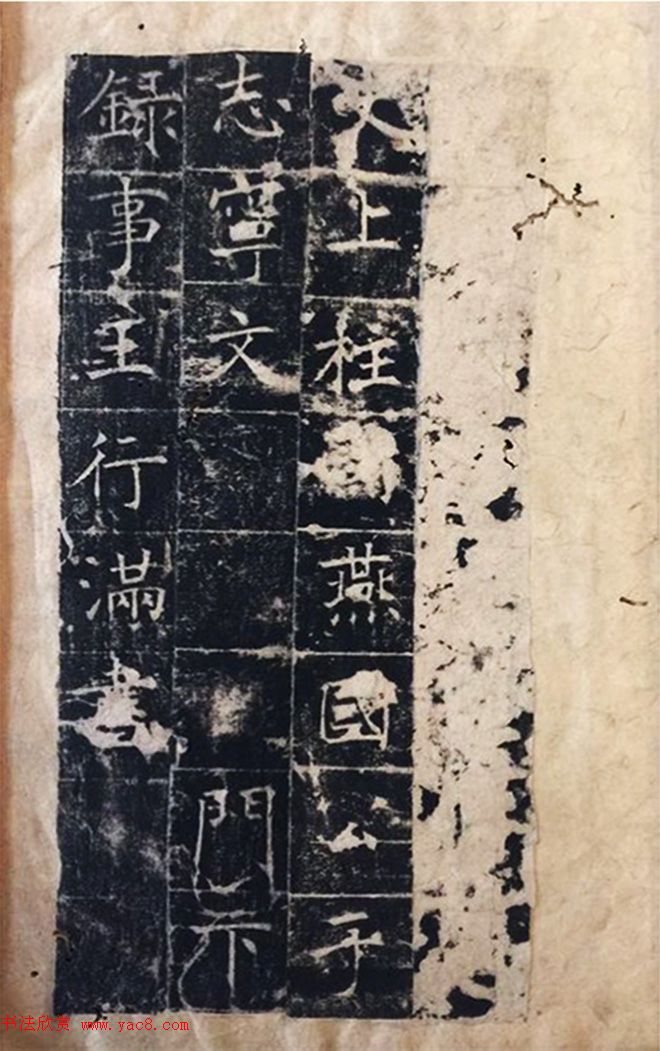 上柱燕國公于
志寧文門下
録事王行滿書
书法欣赏 www.yac8.com